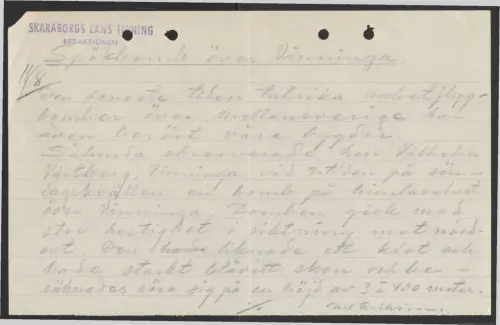 SKARABORGS LÄNS TIDNING
REDAKTIONEN
Spökbomb över Vinninga.
11/8
Den senaste tiden talrika
bomber över mellansverige har
även berört våra bygder.
Sålunda observerade herr Vilhelm
Vinninga vid
en bomb på himlavalvet
över Vinninga. Bomben gick med
stor hastighet i riktning mot nord-
ost. Den hade liknade ett klot och
hade starkt blåvitt sken och be-
räknades röra sig på en höjd av 3 à 400 meter.